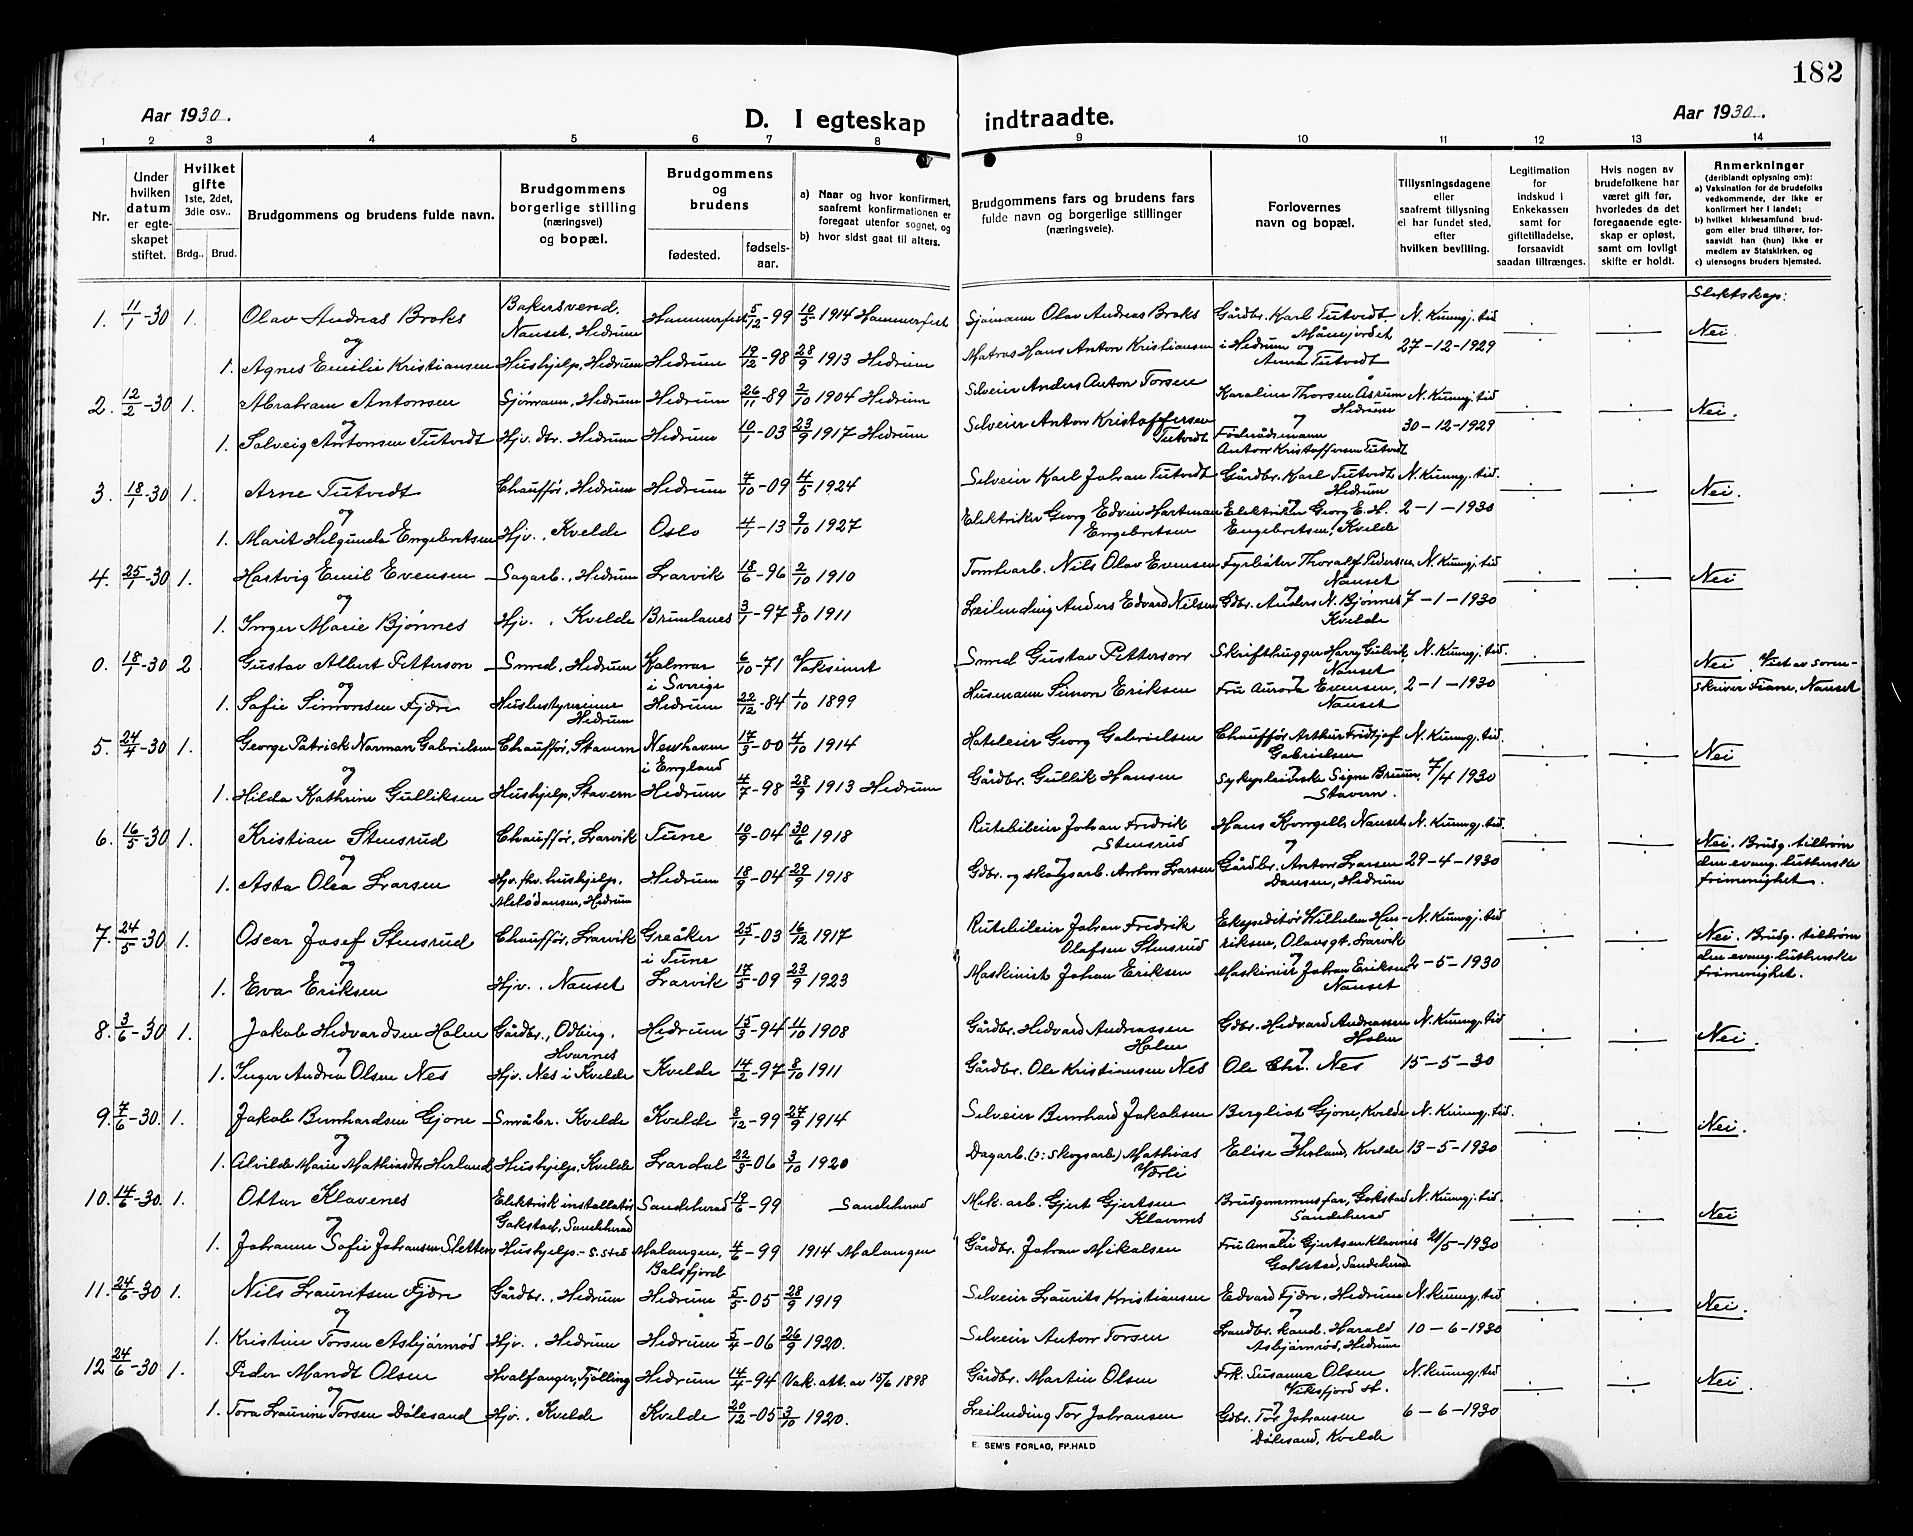 182
Aar 1930.
D. I egteskap indtraadte.
Aar 1930.
1 2 3 4 5 6 7 8 9 10 11 12 13 14
Nr.
Under hvilken datum er egte-skapet stiftet.
Hvilket gifte 1ste, 2det, 3die osv..
Brdg.. Brud.
Brudgommens og brudens fulde navn.
Brudgommens borgerlige stilling (næringsvei) og bopæl.
Brudgommens og brudens
fødested.
fødsels-aar.
a) Naar og hvor konfirmert, saafremt konfirmationen er foregaat utenfor sognet, og
b) hvor sidst gaat til alters.
Brudgommens fars og brudens fars fulde navn og borgerlige stillinger (næringsveie).
Forlovernes navn og bopæl.
Tillysningsdagene eller saafremt tillysning ei har fundet sted, efter hvilken bevilling.
Legitimation for indskud i Enkekassen samt for giftetilladelse, forsaavidt saadan tiltrænges.
Hvis nogen av brudefolkene har været gift før, hvorledes da det foregaaende egte-skap er opløst, samt om lovligt skifte er holdt.
Anmerkninger
(deriblandt oplysning om):
a) Vaksination for de brudefolks vedkommende, der ikke er konfirmert her i landet;
b) hvilket kirkesamfund brud-gom eller brud tilhører, for-saavidt han (hun) ikke er medlem av Statskirken, og
c) utensogns bruders hjemsted.
Slektskap:
1. 11/1-30 1. Olav Andreas Broks Bakersvend, Nanset, Hedrum Hammerfest 5/12-99 10/5 1914 Hammerfest Sjømann Olav Andreas Broks Gårdbr. Karl Tutvedt. Månejordet i Hedrum og N. Kunngj. tid Nei.
og
1. Agnes Emilie Kristiansen Hushjelp, Hedrum Hedrum 19/12-98 28/9 1913 Hedrum Matros Hans Anton Kristiansen Anna Tutvedt 27-12-1929
2. 12/2-30 1. Abraham Antonsen Sjömann, Hedrum Hedrum 26/11-89 2/10 1904 Hedrum Selveier Anders Anton Torsen Karoline Thorsen Åsrum Hedrum N. Kunngj. tid Nei.
og
1. Solveig Antonsen Tutvedt Hjv. dtr. Hedrum Hedrum 10/1-03 23/9 1917 Hedrum Selveier Anton Kristoffersen Tutvedt Føderådsmann Anton Kristoffersen Tutvedt 30-12-1929
3. 18/1-30 1. Arne Tutvedt Chauffør, Hedrum Hedrum 7/10-09 4/5 1924 Selveier Karl Johan Tutvedt Gårdbr. Karl Tutvedt, Hedrum N. Kunngj. tid. Nei.
og
1. Marit Helgunda Engebretsen Hjv., Kvelde Oslo 4/1-13 9/10 1927 Elektriker Georg Edvin Hartman Engebretsen Elektriker Georg E. H. Engebretsen, Kvelde 2-1-1930
4. 25/1-30 1. Hartvig Emil Evensen Sagarb., Hedrum Larvik 18/6-96 2/10 1910 Tomtearb. Nils Olav Evensen Fyrbøter Thoralf Pedersen, Nanset N. Kunngj. tid Nei
og
1. Inger Marie Bjönnes Hjv., Kvelde Brunlanes 3/1-97 8/10 1911 Leilending Anders Edvard Nilsen Gdbr. Anders N. Bjönnes Kvelde 7-1-1930
0. 18/1-30 2 Gustav Albert Petterson Smed, Hedrum Kalmar i Sverige 6/10-71 Vaksinert Smed Gustav Petterson Skrifthugger Harry Gulvik, Nanset N. Kunngj. tid. Nei. Viet av soren-skriver Fiane, Nanset
og
1. Sofie Simonsen Fjære Husbestyrerinne Hedrum Hedrum 22/12-84 1/10 1899 Husmann Simon Eriksen Fru Aurora Evensen, Nanset 2-1-1930
5. 24/4-30 1. George Patrick Norman Gabrielsen Chauffør, Stavern Newhaven i England 17/3-00 4/10 1914 Hoteleier Georg Gabrielsen Chauffør Arthur Fridtjof Gabrielsen N. Kunngj. tid. Nei
og
1. Hilda Kathrine Gulliksen Hushjelp, Stavern Hedrum 4/7-98 28/9 1913 Hedrum Gårdbr. Gullik Hansen Sykepleierske Signe Bruun, Stavern. 7/4 1930
6. 16/5-30 1. Kristian Stensrud Chauffør, Larvik Tune 10/9-04 30/6 1918 Rutebileier Johan Fredrik Stensrud Hans Kongell, Nanset N. Kunngj. tid. Nei. Brudg. tilhører den evang. lutherske frimenighet.
og
1. Asta Olea Larsen Hjv. fhv. hushjelp. Hedrum Hedrum 18/9-04 29/9 1918 Gdbr. og skogsarb. Anton Larsen Gårdbr. Anton Larsen Dansen, Hedrum 29-4-1930
7. 24/5-30 1. Oscar Josef Stensrud Chauffør, Larvik Greåker i Tune 25/1-03 16/12 1917 Rutebileier Johan Fredrik Olafsen Stensrud Ekspeditør Wilhelm Hen-riksen, Olavsgt. Larvik N. Kunngj. tid Nei. Brudg. tilhører den evang. lutherske frimenighet.
og
1. Eva Eriksen Hjv., Nanset Larvik 17/5-09 23/9 1923 Maskinist Johan Eriksen Maskinist Johan Eriksen Nanset 2-5-1930
8. 3/6-30 1. Jakob Hedvardsen Holm Gårdbr., Odberg, Hvarnes Hedrum 15/3-94 11/10 1908 Gårdbr. Hedvard Andreassen Holm Gdbr. Hedvard Andreassen Holm N. Kunngj. tid Nei.
og
1. Inger Andrea Olsen Nes Hjv. Nes i Kvelde Kvelde 14/2-97 8/10 1911 Gårdbr. Ole Kristiansen Nes Ole Chr. Nes 15-5-30
9. 7/6-30. 1. Jakob Bernhardsen Gjone Småbr. Kvelde Kvelde 8/12-99 27/9 1914 Selveier Bernhard Jakobsen Bergliot Gjone, Kvelde N. Kunngj. tid. Nei.
og
1. Alvilde Marie Mathiasdtr Herland Hushjelp, Kvelde Lardal 22/3-06 3/10 1920 Dagarb. (ɔ: skogsarb.) Mathias Værli Elise Herland, Kvelde 13-5-1930
10. 14/6-30. 1. Ottar Klavenes Elektrisk installatør Gokstad, Sandeherad Sandeherad 19/6-99 Sandeherad Mek. arb. Gjert Gjertsen Klavenes Brudgommens far, Gokstad Sandeherad N. Kunngj. tid. Nei
og
1. Johanne Sofie Johansen Sletten Hushjelp - s. sted Malangen, Balsfjord 4/6-99 1914 Malangen Gårdbr. Johan Mikalsen Fru Amalie Gjertsen Klavenes Gokstad, Sandeherad 21/5-1930
11. 24/6-30 1. Nils Lauritsen Fjære Gårdbr., Hedrum Hedrum 5/5-05 28/9 1919 Selveier Laurits Kristiansen Edvard Fjære, Hedrum N. Kunngj. tid Nei.
og
1. Kristine Torsen Asbjørnrød Hjv., Hedrum Hedrum 5/4-06 26/9 1920. Selveier Anton Torsen Landbr. kand. Harald Asbjørnrød, Hedrum 10-6-1930
12 24/6-30 1. Peder Mandt Olsen Hvalfanger, Tjølling Hedrum 14/4-94 Vak. att. av 15/6 1898 Gårdbr. Martin Olsen Frk. Susanne Olsen Viksfjord st. N. Kunngj. tid Nei
og
1. Tora Laurine Torsen Dålesand Hjv., Kvelde Kvelde 20/12-05 3/10 1920. Leilending Tor Johansen Gdbr. Tor Johansen Dålesand, Kvelde 6-6-1930
E. SEM'S FORLAG, FR.HALD